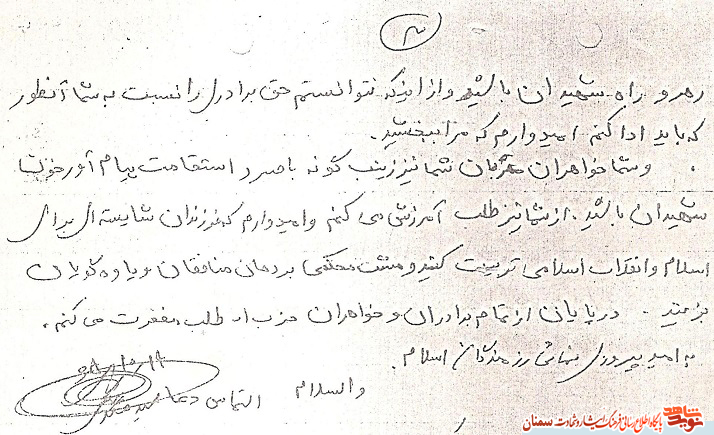 ۳
رهرو راه شهیدان باشید و از اینکه نتوانستم حق برادری را نسبت به شما آنطور
که باید ادا کنم امیدوارم که مرا ببخشید.
و شما خواهران مهربان شما نیز زینب گونه با صبر و استقامت پیام آور خون
شهیدان باشید. از شما نیز طلب آمرزش می کنم و امیدوارم که فرزندان شایسته ای برای
اسلام و انقلاب اسلامی تربیت کنید و مشت محکمی بر دهان منافقان و یاوه گویان
بزنید. در پایان از تمام برادران و خواهران حزب ا... طلب مغفرت می کنم.
به امید پیروزی نهائی رزمندگان اسلام.
والسلام التماس دعا
نوید شاهد پایگاه اطلاع رسانی فرهنگ ایثار و شهادت سمنان